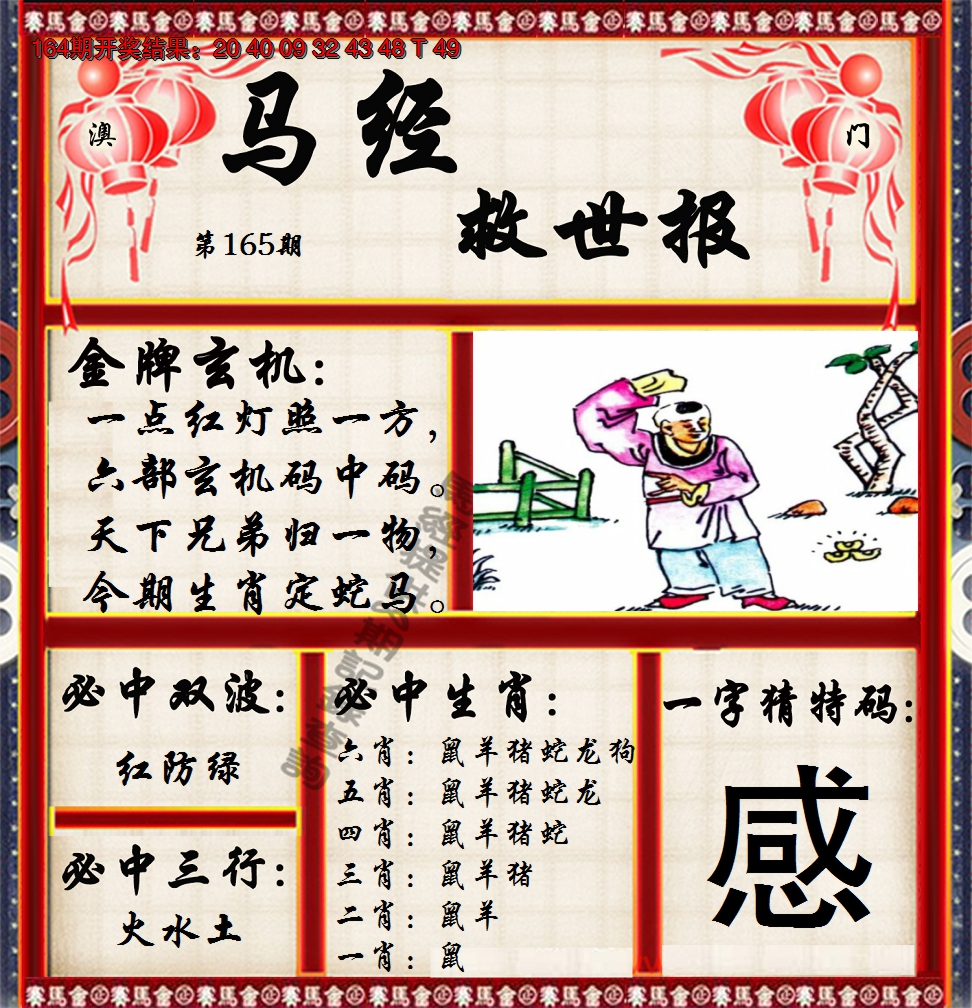 164期开奖结果：20 40 09 32 43 48 T 49
澳 门
马经
救世报
第165期
金牌玄机：
一点红灯照一方，
六部玄机码中码。
天下兄弟归一物，
今期生肖定蛇马。
必中双波：
红防绿
必中三行：
火水土
必中生肖：
六肖：鼠羊猪蛇龙狗
五肖：鼠羊猪蛇龙
四肖：鼠羊猪蛇
三肖：鼠羊猪
二肖：鼠羊
一肖：鼠
一字猜特码：
感